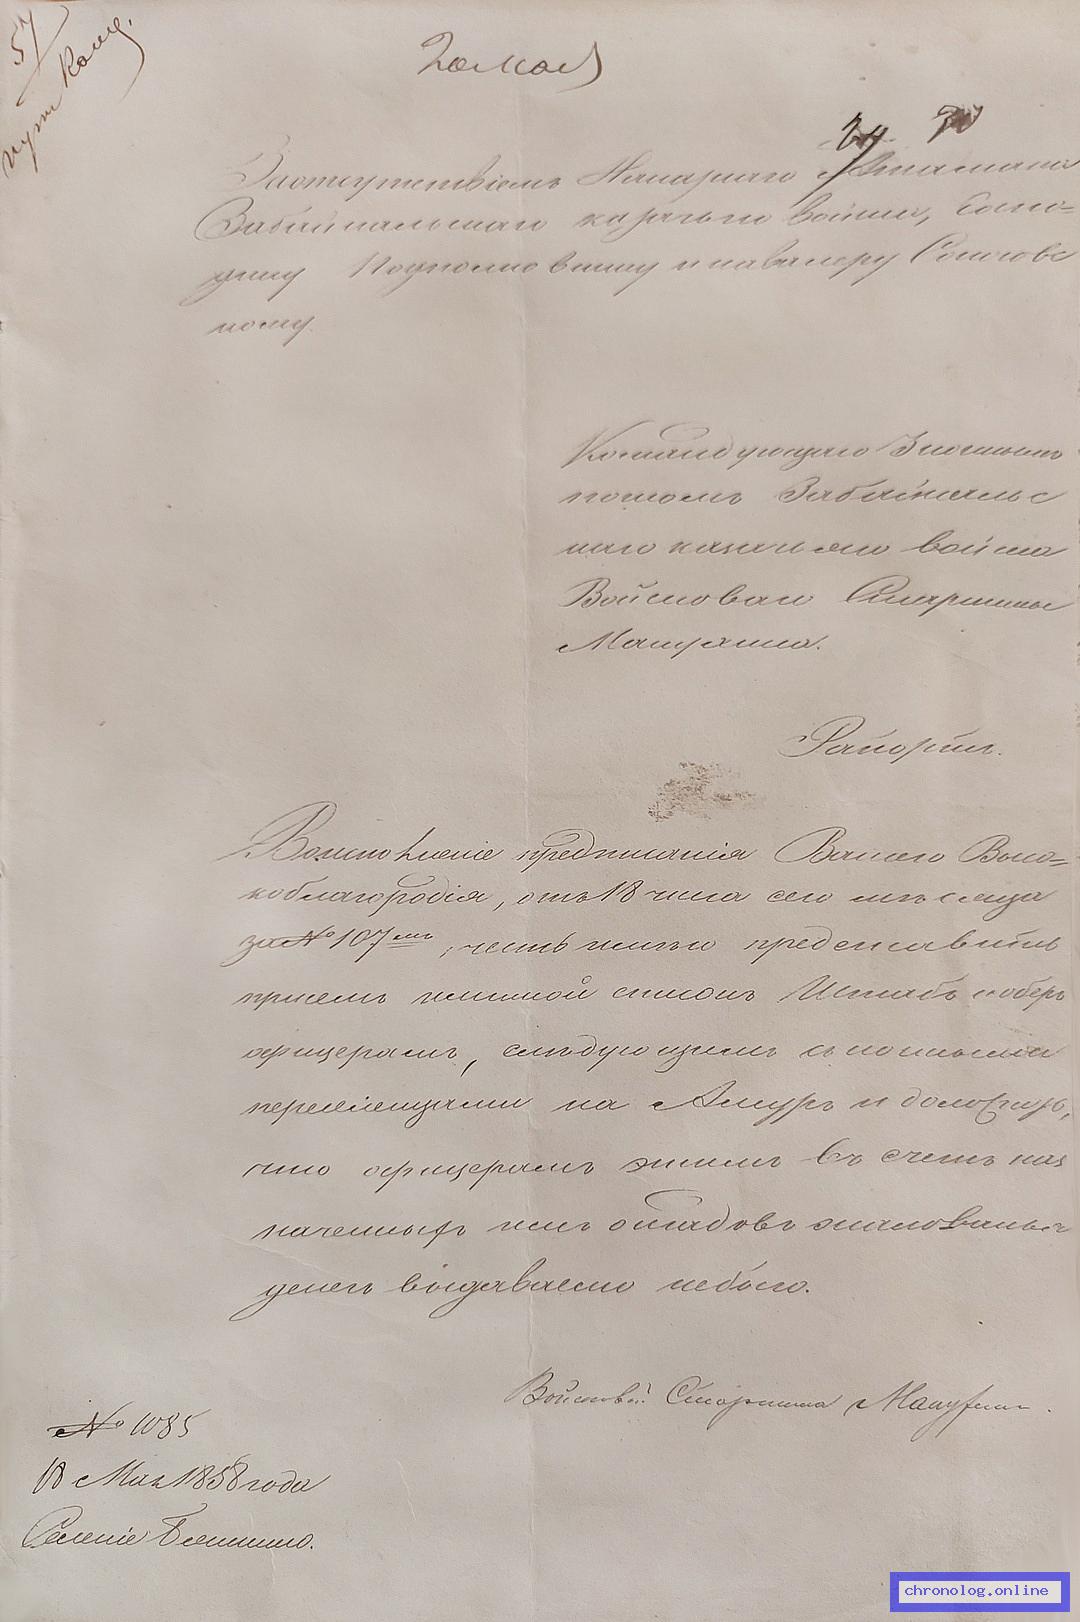 57
Заотсутствіемъ Наказнаго Атамана
Забайкальскаго казачьяго войска, Госпо=
дину Подполковнику и кавалеру Соколовс
кому.
Командующаго Зконнымъ
полкомъ Забайкальс
каго казачьяго войска
Войсковаго Старшины
Мацуянна.
Рапортъ.
Воисполненіе предписанія Вашего Высо=
коблагородія, отъ 18 числа сего мѣсяца
за № 107мъ, честь имѣю представить
присемъ именной списокъ Штабъ и оберъ
офицерамъ, слѣдующимъ съ конными
переселенцами на Амуръ и доложить,
что офицерамъ этимъ въ счетъ наз
наченныхъ имъ окладовъ жалованья
денегъ выдаваемо небыло.
Войсковой Старшина
№ 1085
18 Мая 1858 года
Селеніе
chronolog.online